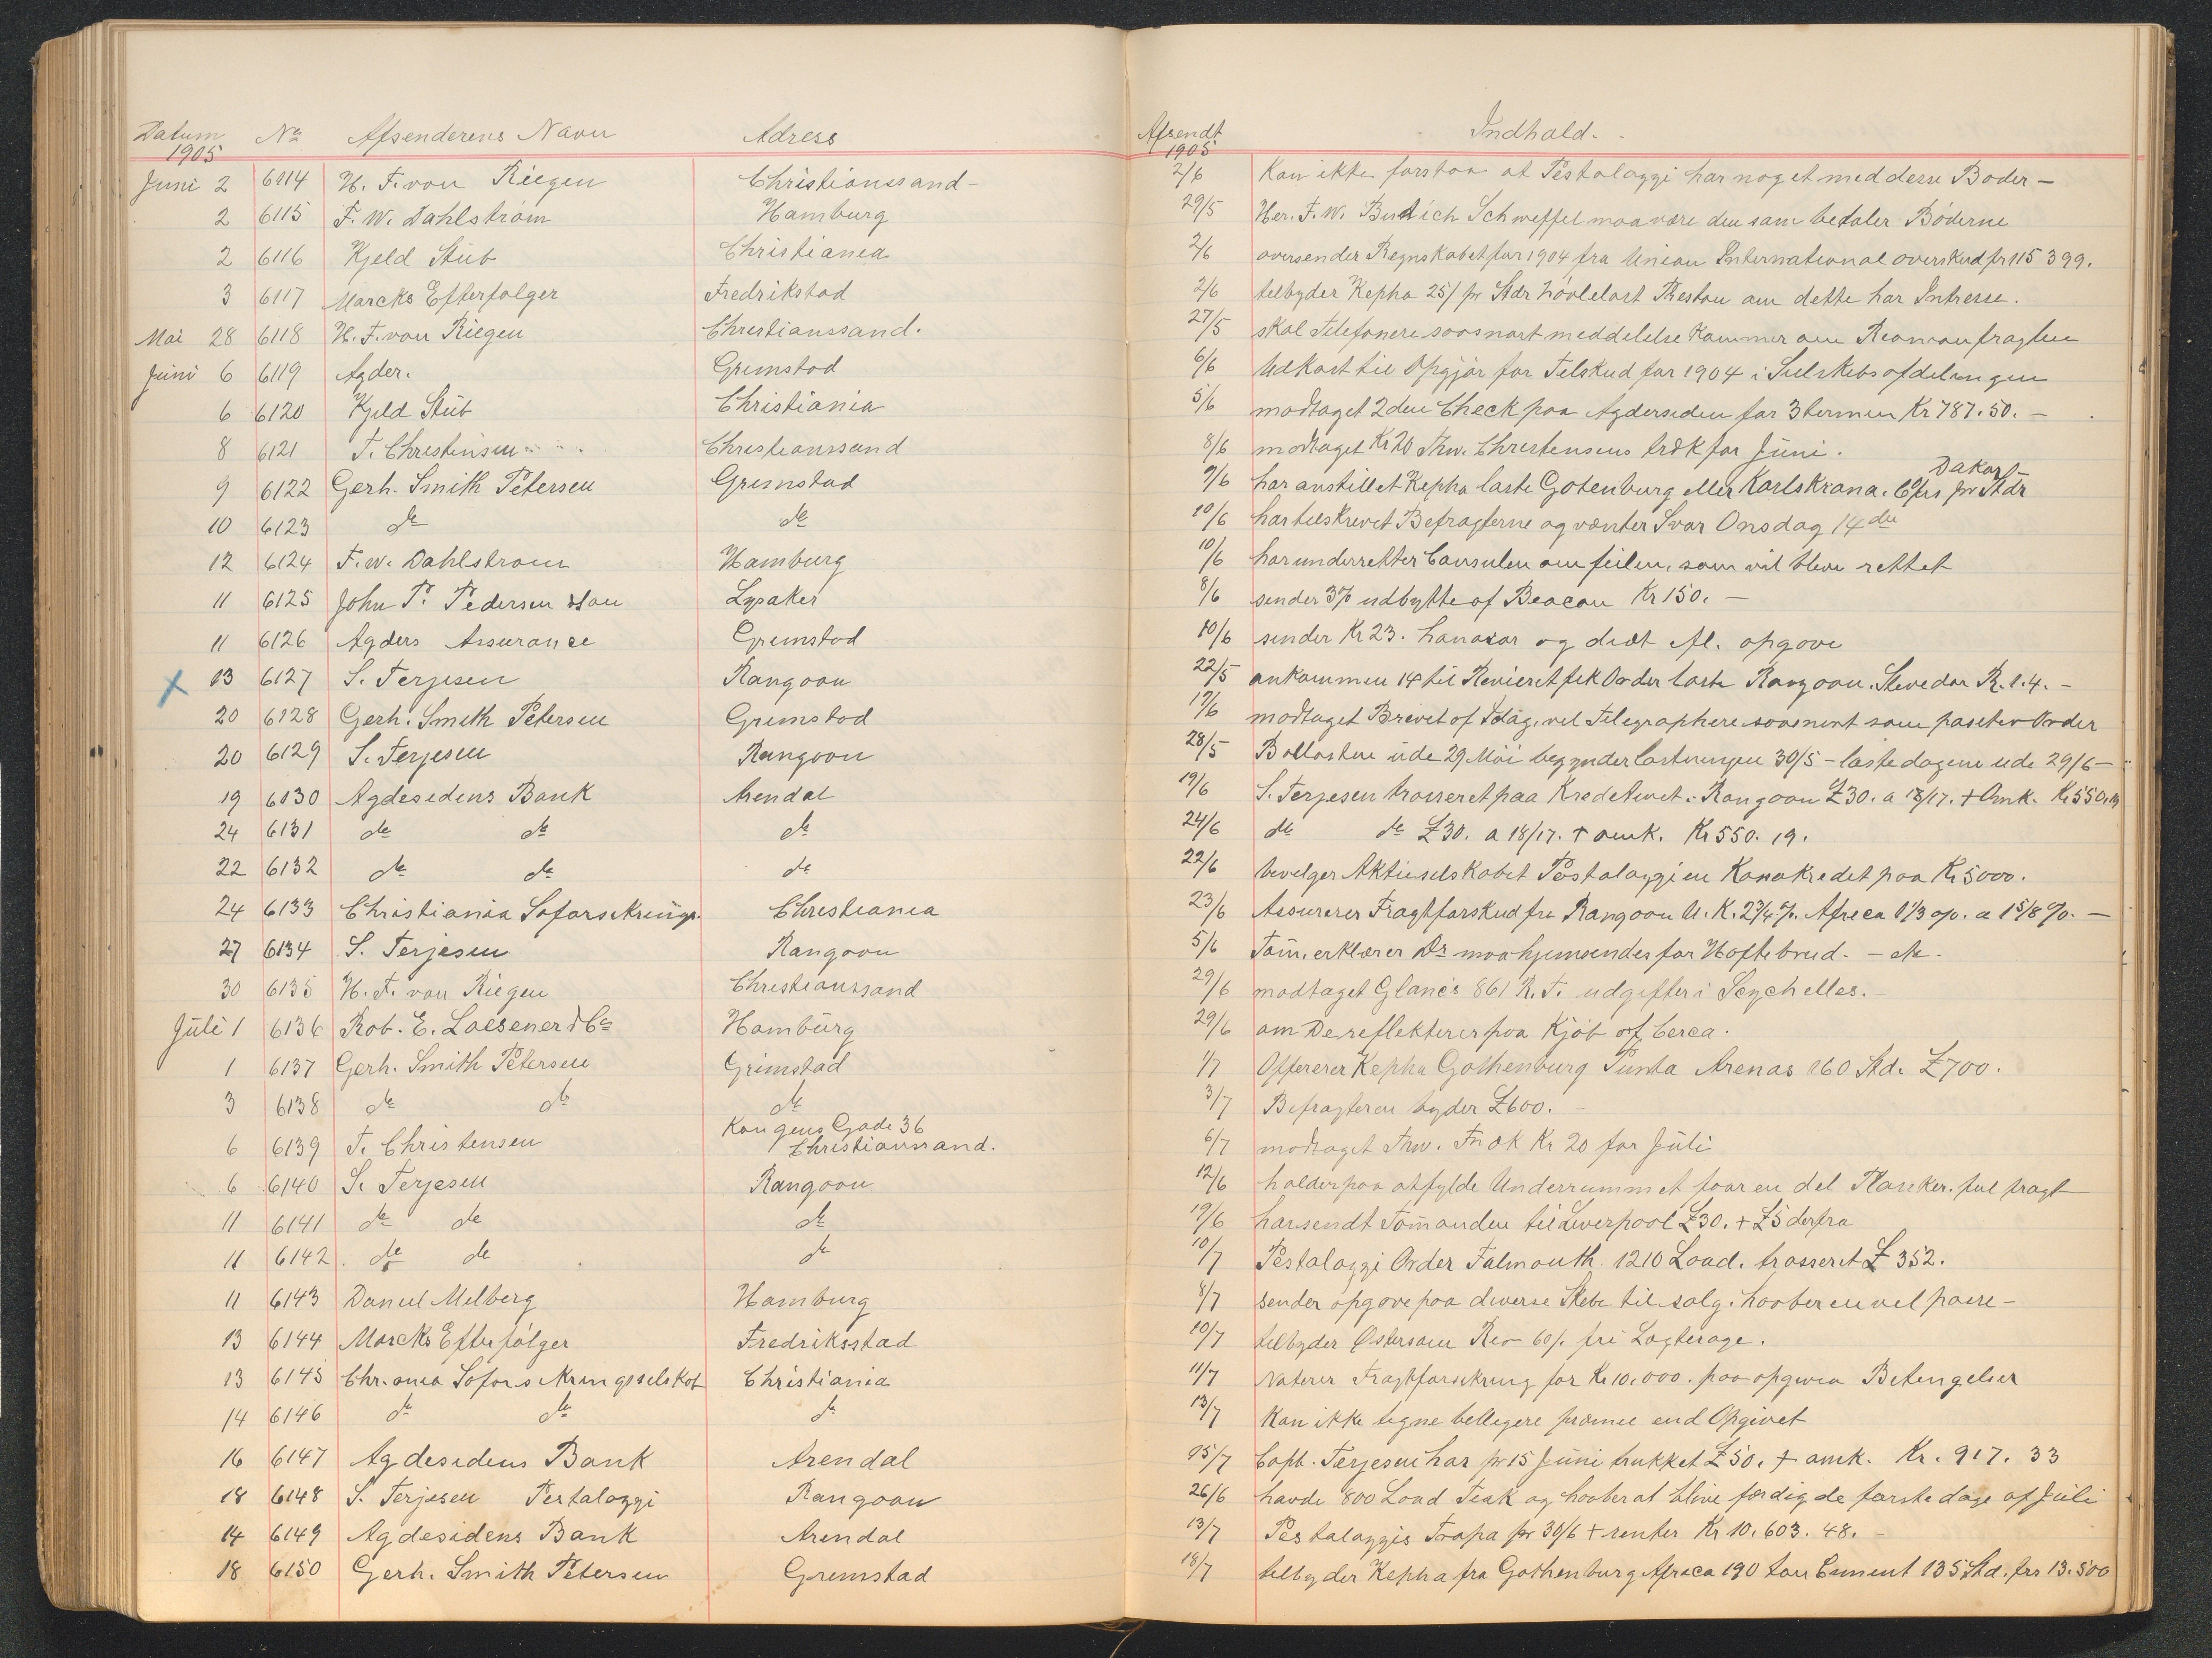 Datum No Afsenderens Navn Adress Afsendt Indhald.
1905 1905
Juni 2 6114 H. F. von Riegen Christianssand- 2/6 Kan ikke forstaa at Pestalozzi har noget med desse Bøder -
2 6115 F. W. Dahlström Hamburg 29/5 Her. F. W. Schweffel maa være den sam betaler Böderne
2 6116 Kjeld Stub Christiania 2/6 oversender Regnskabet for 1904 fra Union International overskud pr 115 399.
3 6117 Marcks Efterfølger Fredrikstad 2/6 telbyder Kepha 25/ pr Stdr Preston am dette har Intresse.
Mai 28 6118 H. F. von Riegen Christianssand. 27/5 skal Telefonere saasnart meddelelse kommer om fragten
Juni 6 6119 Agder. Grimstad 6/6 Udkast til Opgjör for Telskud for 1904 i Selskabsafdelingen
6 6120 Kjeld Stub Christiania 5/6 modtaget 2den Check paa Agdersiden for 3 termin Kr 787.50. -
8 6121 T. Christensen Christianssand 8/6 modtaget Kr 20 Trw. Christensens træk for Juni.
9 6122 Gerh. Smith Petersen Grimstad 9/6 har anstillet Kepha laste Gotenburg eller Karlskrana. Dakar pr Stdr
10 6123 do do 10/6 har telskrevet Befragterne og vænter Svar Onsdag 14de
12 6124 F. W. Dahlstrom Hamburg 10/6 har underrettet Consulen om feilen, som vil bleve rettet
11 6125 John P. Pedersen & Son Lysaker 8/6 sender 3% udbytte af Beacon Kr 150. -
11 6126 Agders Assurance Grimstad 10/6 sender Kr 23. hanorar og diæt efl. opgave
X 13 6127 S. Terjesen Rangoon 22/5 ankommen 14 til Revieret fik Order laste Rangoon. Stevedor R. 1.4. -
20 6128 Gerh. Smith Petersen Grimstad 17/6 modtaget Brevet af Idag, vil Telegraphere saasnart som Order
20 6129 S. Terjesen Rangoon 28/5 Ballasten ude 29 Mai begynder lastningen 30/5 - lastedagene ude 29/6 -
19 6130 Agdesidens Bank Arendal 19/6 S. Terjesen trasseret paa Rangoon £30. a 18/17. + Omk. Kr 550.19
24 6131 do do do 24/6 do do £30. a 18/17. + omk. Kr 550. 19.
22 6132 do do do 22/6 bevelger Aktieselskabet Pestalozzi en Kassakredet paa Kr 5000.
24 6133 Christiania Søforsikrings. Christiania 23/6 Assurerer Fragtforskud fra Rangoon U. K. 2 3/4 %. Africa 1 1/3 o/o. a 1 5/8 %. -
27 6134 S. Terjesen Rangoon 5/6 Töm. erklærer Dr maa hjemsendes for Hoftebrud. - etc.
30 6135 H. F. von Riegen Christianssand 29/6 modtaget Glances 861 R. T. udgifter i Seychelles.
Juli 1 6136 Rob. E. Loesener & Co Hamburg 29/6 om De reflekterer paa Kjøb af Cerea.
1 6137 Gerh. Smith Petersen Grimstad 1/7 Offererer Kepha Gothenburg Punta Arenas 160 Std. £700.
3 6138 do do do 3/7 Befragteren byder £600. -
6 6139 T. Christensen Kongens Gade 36 Christianssand. 6/7 modtaget Trw. Træk Kr 20 for Juli
6 6140 S. Terjesen Rangoon 12/6 holder paa atfylde Underrummet faar en del Plancker. ful fragt
11 6141 do do do 19/6 har sendt Tömanden til Liverpool £30. + £5 derfra
11 6142. do do do 10/7 Pestalozzi Order Falmouth. 1210 Load. trasseret £ 352.
11 6143 Daniel Melberg Hamburg 8/7 sender opgave paa diverse Skebe til salg. haaber en vel passe -
13 6144 Marcks Efterfølger Fredriksstad 10/7 telbyder Østersøen Rio 60/. fri Lagterage.
13 6145 Chr.ania Søforsikringsselskab Christiania 11/7 Noterer Fragtforsikring for Kr 10.000. paa opgiven Betingelser
14 6146 do do do 13/7 Kan ikke tegne bellegere premie end Opgivet
16 6147 Agdesidens Bank Arendal 15/7 Capt. Terjesen har pr 15 Juni trukket £50. + omk. Kr. 917. 33
18 6148 S. Terjesen Pestalozzi Rangoon 26/6 havde 800 Load Teak og haaber at blive færdig de første dage af Juli
14 6149 Agdesidens Bank Arendal 13/7 Pestalozzis Trapa pr 30/6 + renter Kr 10.603. 48. -
18 6150 Gerh. Smith Petersen Grimstad 18/7 telbyder Kepha fra Gothenburg Africa 190 ton Cement 135 Std. frs 13.500